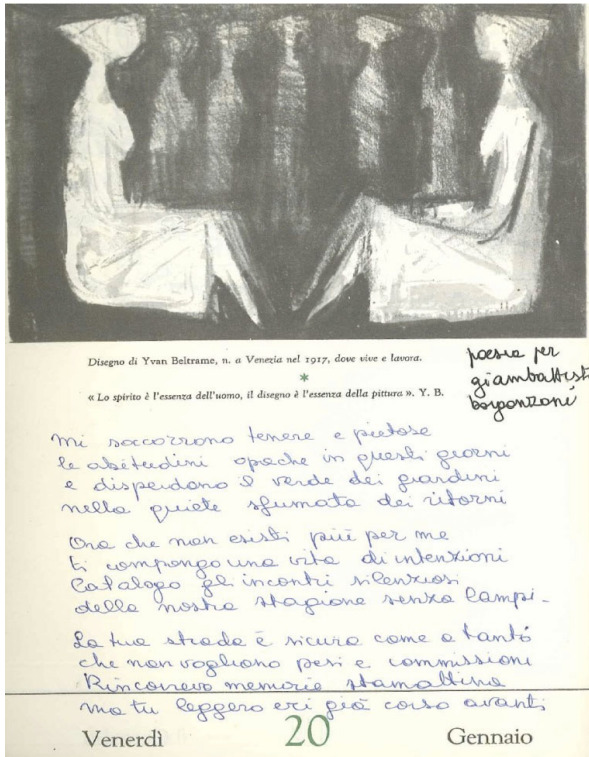 Disegno di Yvan Beltrame, n. a Venezia nel 1917, dove vive e lavora.
*
« Lo spirito è l'essenza dell'uomo, il disegno è l'essenza della pittura ». Y. B.
poesia per
giambattist
mi soccorrono tenere e pietose
le abitudini opache in questi giorni
e disperdono il verde dei giardini
nella quiete sfumata dei ritorni
Ora che non esisti più per me
ti compongo una vita di intenzioni
Catalogo gli incontri silenziosi
della nostra stagione senza lampi -
La tua strada è sicura come a tanti
che non vogliono pesi e commissioni
Rincorrevo memorie stamattina
ma tu leggero eri già corso avanti
Venerdì 20 Gennaio